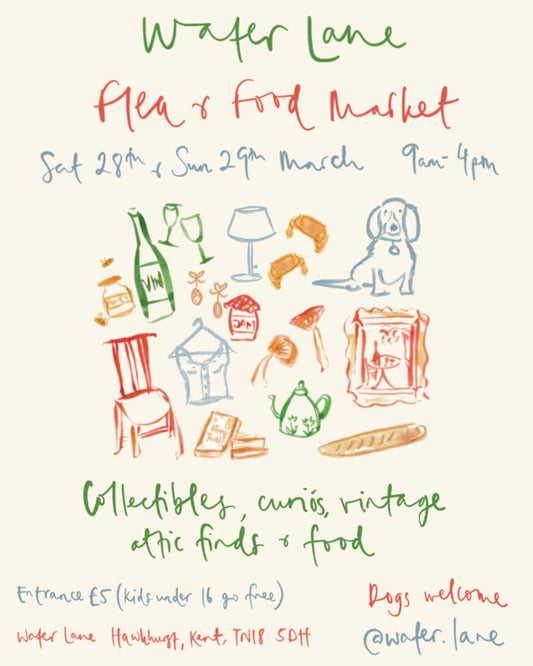 Wafer Lane
Flea & Food Market
Sat 28th & Sun 29th March 9am-4pm
VIN
JAM
Collectibles, curiós, vintage
attic finds & food
Entrance £5 (kids under 16 go free)
Dogs welcome
Wafer Lane Hawkhurst, Kent, TN18 5DH
@wafer.lane